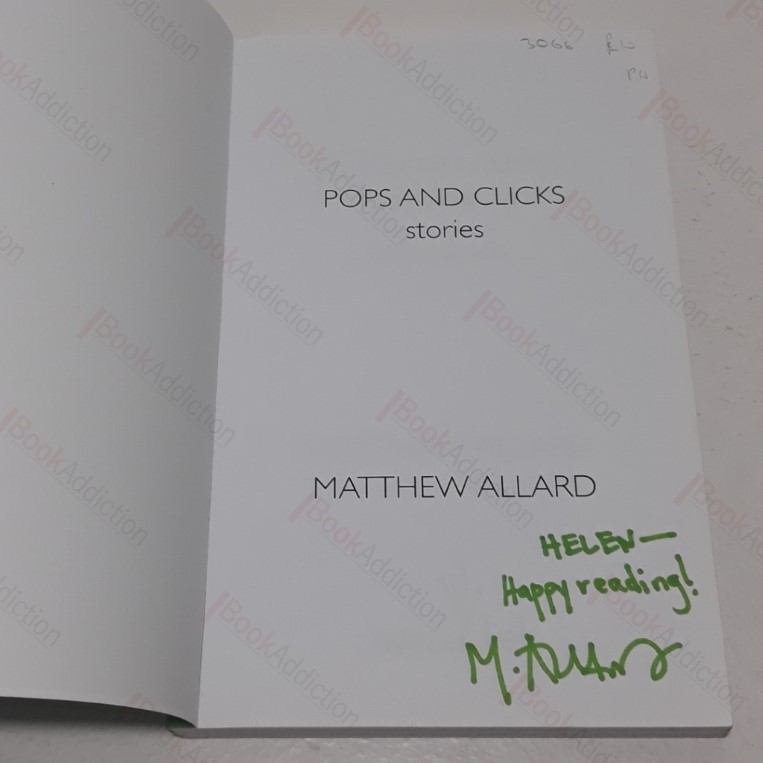 3066 £10
PU
POPS AND CLICKS
stories
MATTHEW ALLARD
HELEN—
Happy reading!
M. Allard
BookAddiction